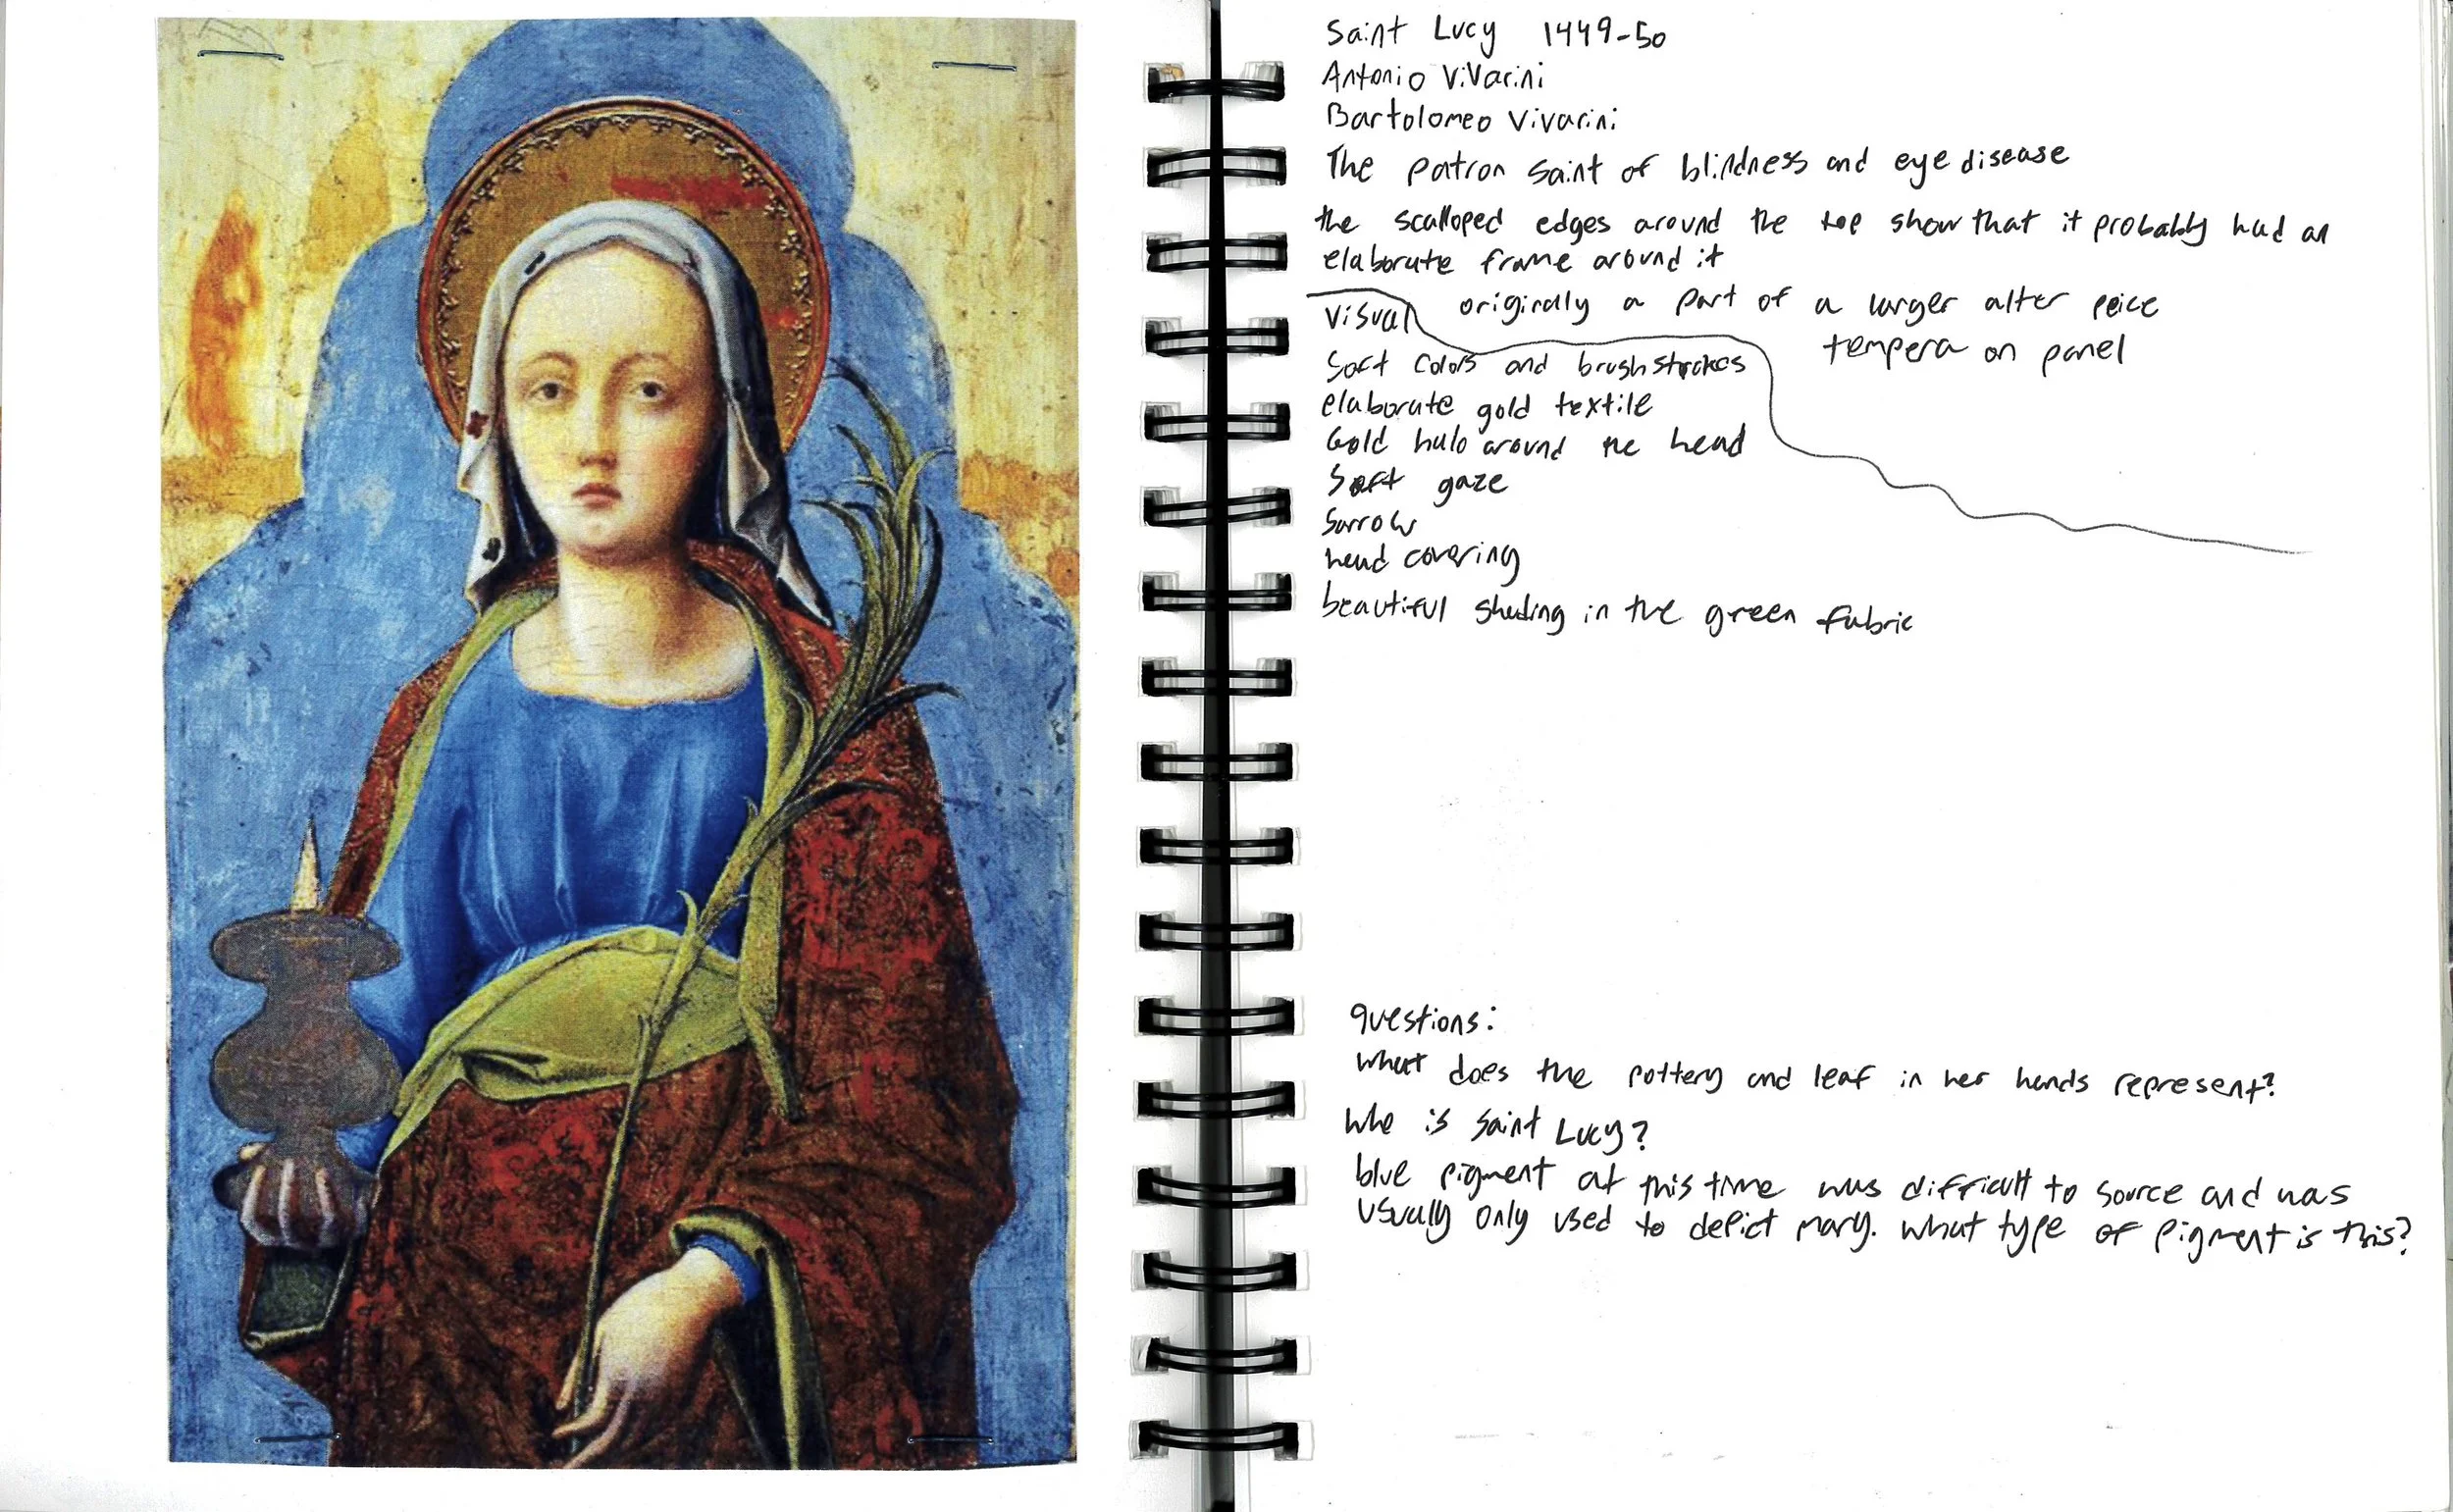 Saint Lucy 1449-50
Antonio Vivarini
Bartolomeo Vivarini
The patron saint of blindness and eye disease
the scalloped edges around the top show that it probably had an
elaborate frame around it
originally a part of a larger alter peice
tempera on panel
Visual
Soft colors and brushstrokes
elaborate gold textile
Gold halo around the head
Soft gaze
Sorrow
head covering
beautiful shading in the green fabric
questions:
What does the pottery and leaf in her hands represent?
Who is Saint Lucy?
blue pigment at this time was difficult to source and was
usually only used to depict mary. What type of pigment is this?